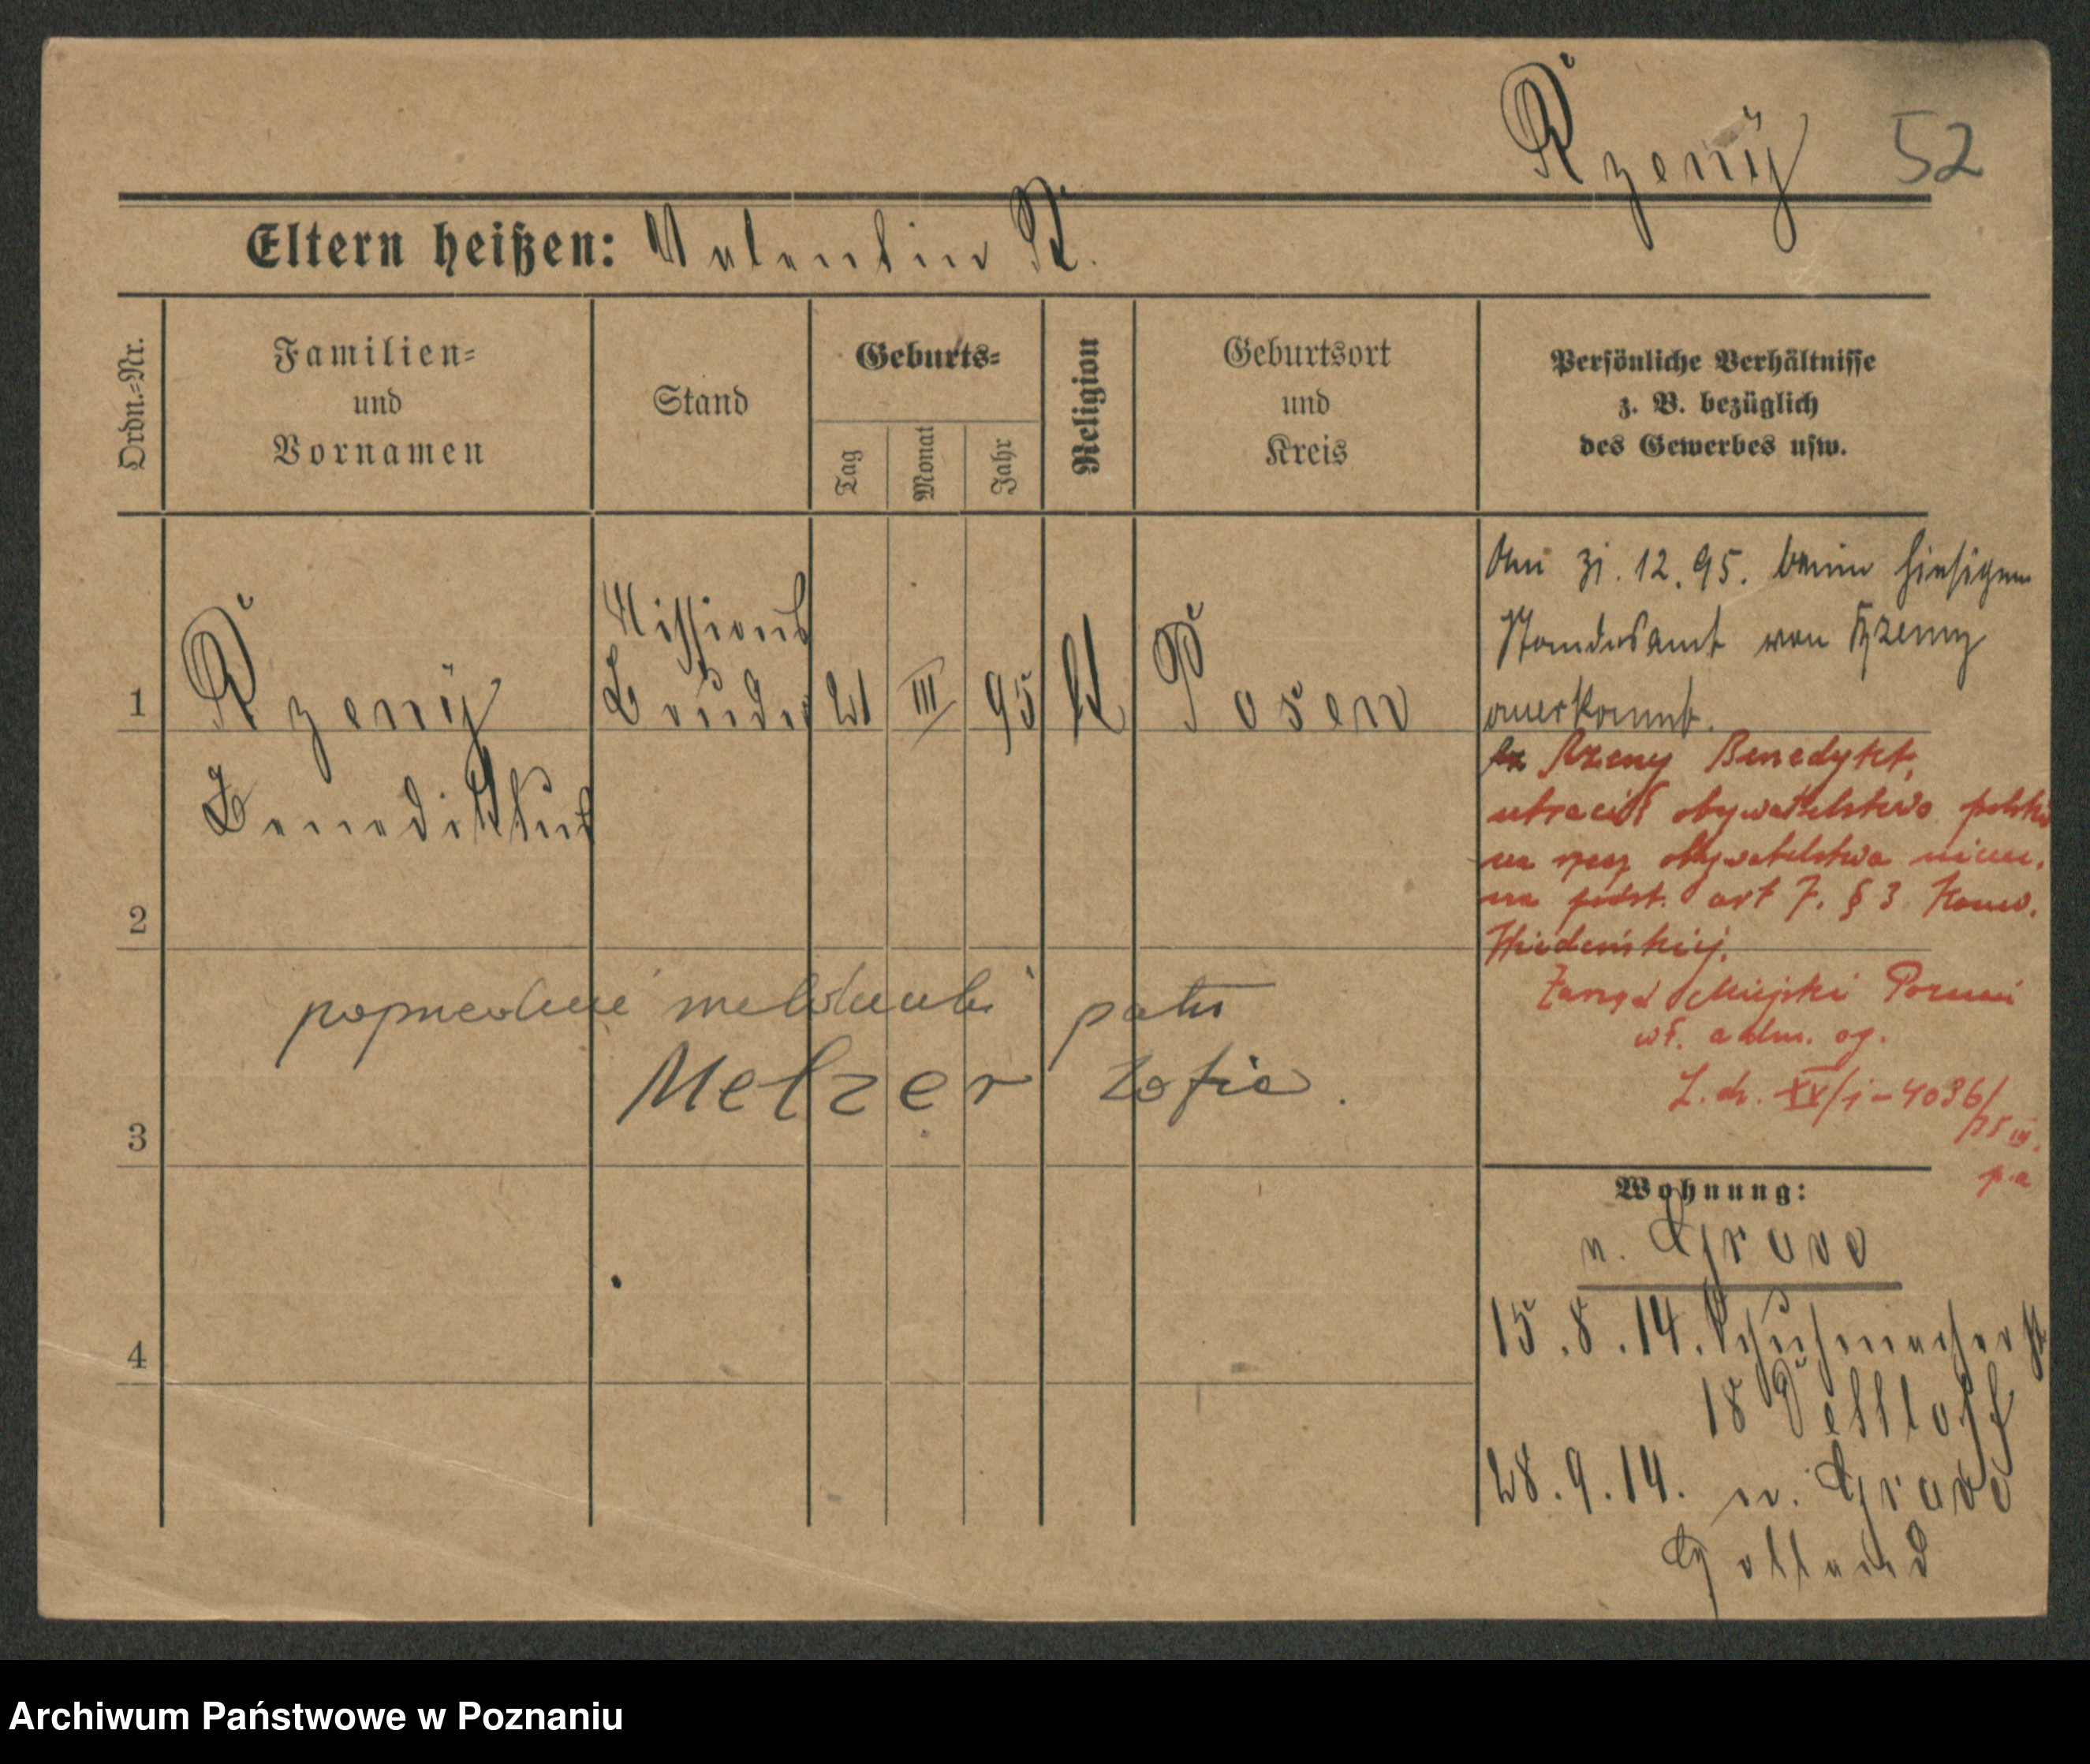 Rzeny 52
Eltern heißen: Valentin R.
Ordn.-Nr.
Familien-
und
Vornamen
Stand
Geburts-
Tag
Monat
Jahr
Religion
Geburtsort
und
Kreis
Persönliche Verhältnisse
z. B. bezüglich
des Gewerbes usw.
1
Rzeny
Benediktus
Missions
Bruder
21 III 95
K
Posen
Am 31.12.95. beim hiesigen
Standesamt von Rzeny
anerkannt.
Rzeny Benedykt,
utracił obywatelstwo polskie
na rzecz obywatelstwa niem.
na podst. art 7. § 3 Konw.
Wiedeńskiej.
Zarząd Miejski Poznań
wł. adm. og.
L. dz. XV/1-4096/
p.a
2
poprzednie meldunki patrz
Melzer Zofia.
3
4
Wohnung:
n. Grave
15.8.14. Schuhmacherst
18
28.9.14. n. Grave
Holland
Archiwum Państwowe w Poznaniu